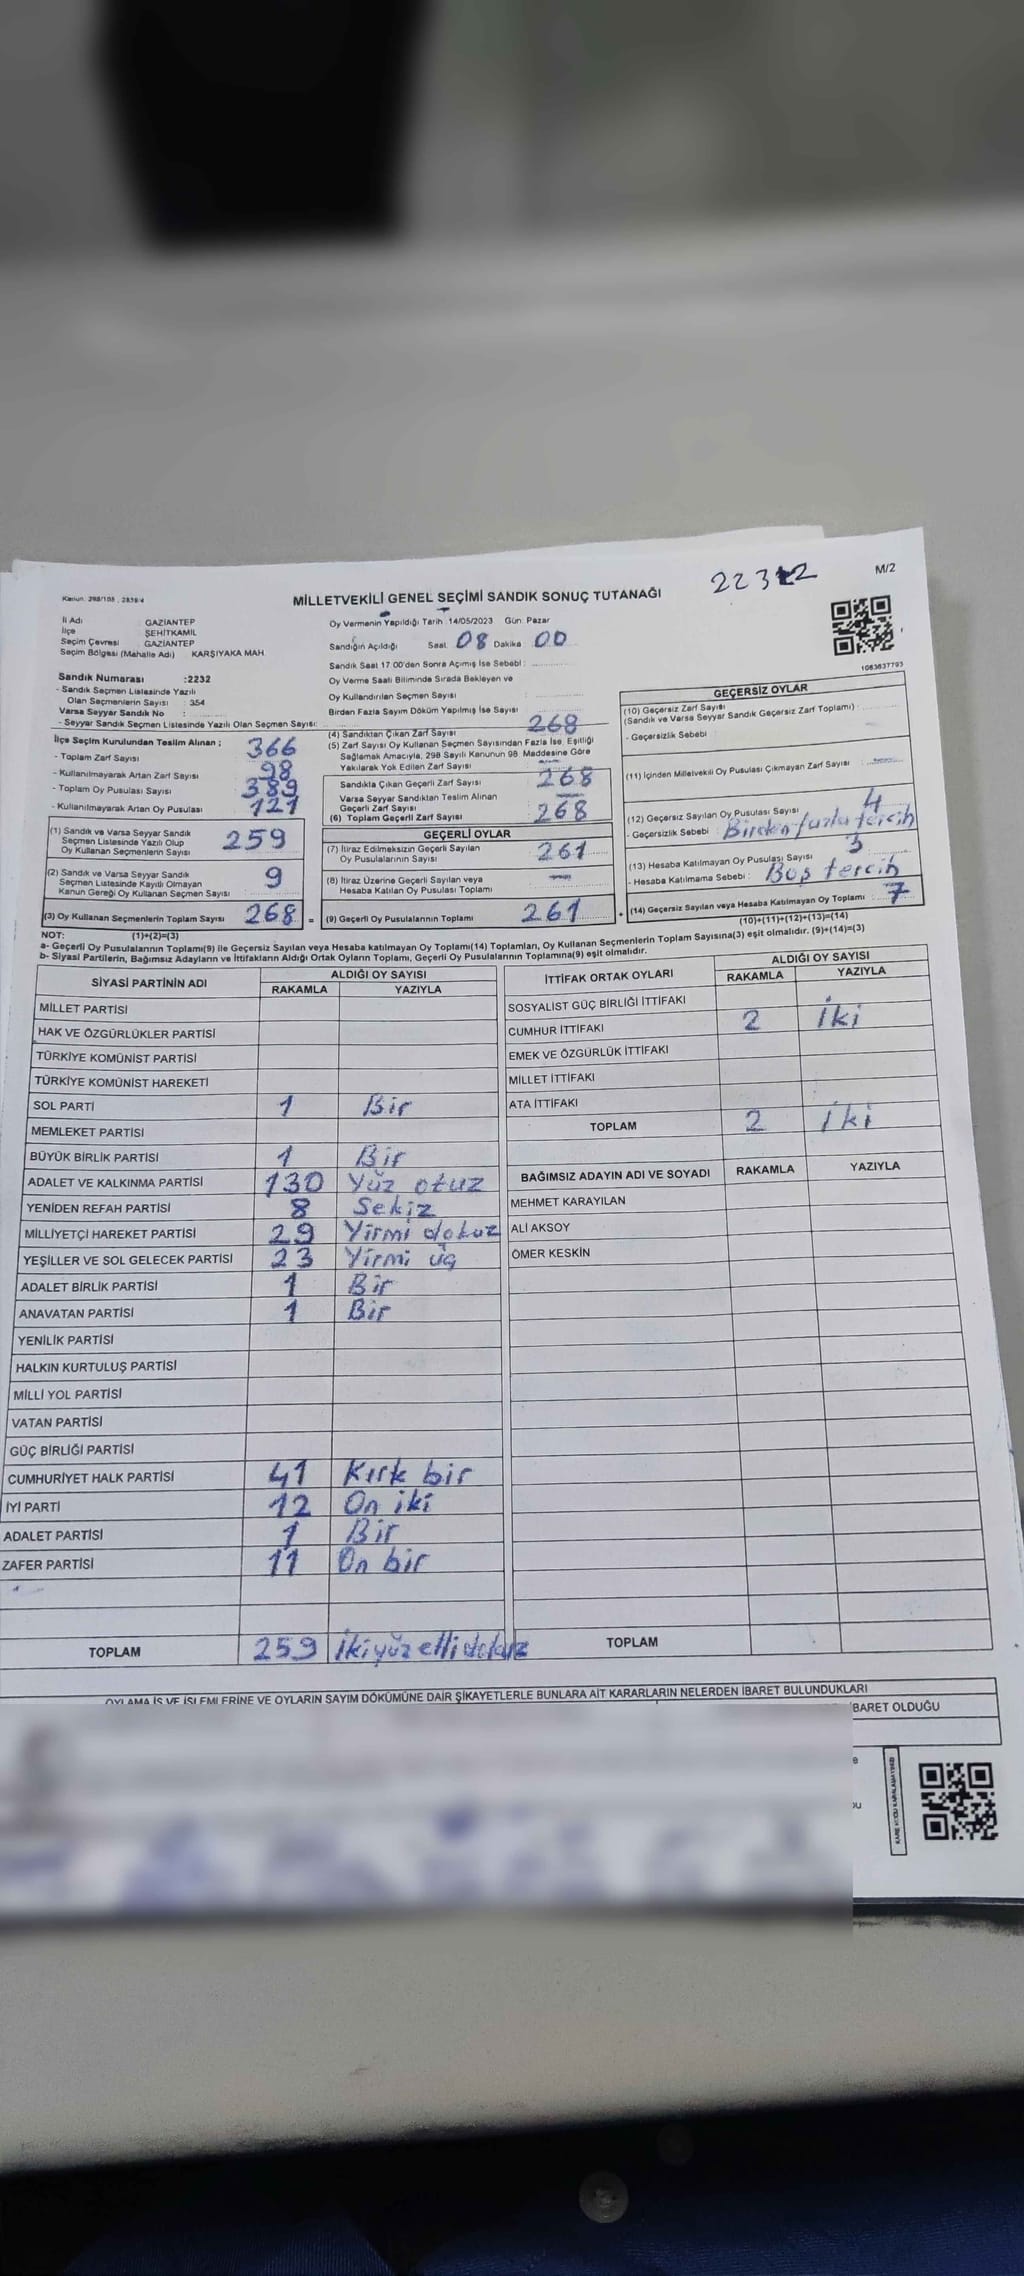 22312
M/2
Kanun: 298/105 , 2839/4
MİLLETVEKİLİ GENEL SEÇİMİ SANDIK SONUÇ TUTANAĞI
İl Adı : GAZİANTEP
İlçe : ŞEHİTKAMİL
Seçim Çevresi : GAZİANTEP
Seçim Bölgesi (Mahalle Adı) KARŞIYAKA MAH.
Oy Vermenin Yapıldığı Tarih :14/05/2023 Gün: Pazar
Sandığın Açıldığı Saat 08 Dakika 00
Sandık Saat 17.00'den Sonra Açılmış İse Sebebi :
Oy Verme Saati Bitiminde Sırada Bekleyen ve
Oy Kullandırılan Seçmen Sayısı :
Birden Fazla Sayım Döküm Yapılmış İse Sayısı
1083637793
Sandık Numarası :2232
- Sandık Seçmen Listesinde Yazılı
Olan Seçmenlerin Sayısı : 354
Varsa Seyyar Sandık No :
- Seyyar Sandık Seçmen Listesinde Yazılı Olan Seçmen Sayısı:
İlçe Seçim Kurulundan Teslim Alınan ;
- Toplam Zarf Sayısı 366
- Kullanılmayarak Artan Zarf Sayısı 98
- Toplam Oy Pusulası Sayısı 389
- Kullanılmayarak Artan Oy Pusulası 121
(1) Sandık ve Varsa Seyyar Sandık
Seçmen Listesinde Yazılı Olup
Oy Kullanan Seçmenlerin Sayısı 259
(2) Sandık ve Varsa Seyyar Sandık
Seçmen Listesinde Kayıtlı Olmayan
Kanun Gereği Oy Kullanan Seçmen Sayısı 9
(3) Oy Kullanan Seçmenlerin Toplam Sayısı 268 =
(1)+(2)=(3)
(4) Sandıktan Çıkan Zarf Sayısı 268
(5) Zarf Sayısı Oy Kullanan Seçmen Sayısından Fazla İse, Eşitliği
Sağlamak Amacıyla, 298 Sayılı Kanunun 98. Maddesine Göre
Yakılarak Yok Edilen Zarf Sayısı —
Sandıkta Çıkan Geçerli Zarf Sayısı 268
Varsa Seyyar Sandıktan Teslim Alınan
Geçerli Zarf Sayısı —
(6) Toplam Geçerli Zarf Sayısı 268
GEÇERLİ OYLAR
(7) İtiraz Edilmeksizin Geçerli Sayılan
Oy Pusulalarının Sayısı 261
(8) İtiraz Üzerine Geçerli Sayılan veya
Hesaba Katılan Oy Pusulası Toplamı —
(9) Geçerli Oy Pusulalarının Toplamı 261 +
GEÇERSİZ OYLAR
(10) Geçersiz Zarf Sayısı
(Sandık ve Varsa Seyyar Sandık Geçersiz Zarf Toplamı)
- Geçersizlik Sebebi
(11) İçinden Milletvekili Oy Pusulası Çıkmayan Zarf Sayısı
(12) Geçersiz Sayılan Oy Pusulası Sayısı 4
- Geçersizlik Sebebi : Birden fazla tercih
(13) Hesaba Katılmayan Oy Pusulası Sayısı 3
- Hesaba Katılmama Sebebi : Boş tercih
(14) Geçersiz Sayılan veya Hesaba Katılmayan Oy Toplamı 7
(10)+(11)+(12)+(13)=(14)
NOT:
a- Geçerli Oy Pusulalarının Toplamı(9) ile Geçersiz Sayılan veya Hesaba katılmayan Oy Toplamı(14) Toplamları, Oy Kullanan Seçmenlerin Toplam Sayısına(3) eşit olmalıdır. (9)+(14)=(3)
b- Siyasi Partilerin, Bağımsız Adayların ve İttifakların Aldığı Ortak Oyların Toplamı, Geçerli Oy Pusulalarının Toplamına(9) eşit olmalıdır.
SİYASİ PARTİNİN ADI
ALDIĞI OY SAYISI
RAKAMLA YAZIYLA
MİLLET PARTİSİ
HAK VE ÖZGÜRLÜKLER PARTİSİ
TÜRKİYE KOMÜNİST PARTİSİ
TÜRKİYE KOMÜNİST HAREKETİ
SOL PARTİ 1 Bir
MEMLEKET PARTİSİ
BÜYÜK BİRLİK PARTİSİ 1 Bir
ADALET VE KALKINMA PARTİSİ 130 Yüz otuz
YENİDEN REFAH PARTİSİ 8 Sekiz
MİLLİYETÇİ HAREKET PARTİSİ 29 Yirmi dokuz
YEŞİLLER VE SOL GELECEK PARTİSİ 23 Yirmi üç
ADALET BİRLİK PARTİSİ 1 Bir
ANAVATAN PARTİSİ 1 Bir
YENİLİK PARTİSİ
HALKIN KURTULUŞ PARTİSİ
MİLLİ YOL PARTİSİ
VATAN PARTİSİ
GÜÇ BİRLİĞİ PARTİSİ
CUMHURİYET HALK PARTİSİ 41 Kırk bir
İYİ PARTİ 12 On iki
ADALET PARTİSİ 1 Bir
ZAFER PARTİSİ 11 On bir
TOPLAM 259 İkiyüz elli dokuz
İTTİFAK ORTAK OYLARI
ALDIĞI OY SAYISI
RAKAMLA YAZIYLA
SOSYALİST GÜÇ BİRLİĞİ İTTİFAKI
CUMHUR İTTİFAKI 2 İki
EMEK VE ÖZGÜRLÜK İTTİFAKI
MİLLET İTTİFAKI
ATA İTTİFAKI
TOPLAM 2 İki
BAĞIMSIZ ADAYIN ADI VE SOYADI RAKAMLA YAZIYLA
MEHMET KARAYILAN
ALİ AKSOY
ÖMER KESKİN
TOPLAM
OYLAMA İŞ VE İŞLEMLERİNE VE OYLARIN SAYIM DÖKÜMÜNE DAİR ŞİKAYETLERLE BUNLARA AİT KARARLARIN NELERDEN İBARET BULUNDUKLARI
BARET OLDUĞU